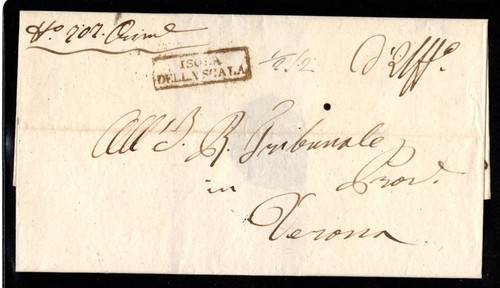 No 202. Crim.e
ISOLA
DELLA SCALA
d'Uff.o
All' I. R. Tribunale
Prov.
in
Verona